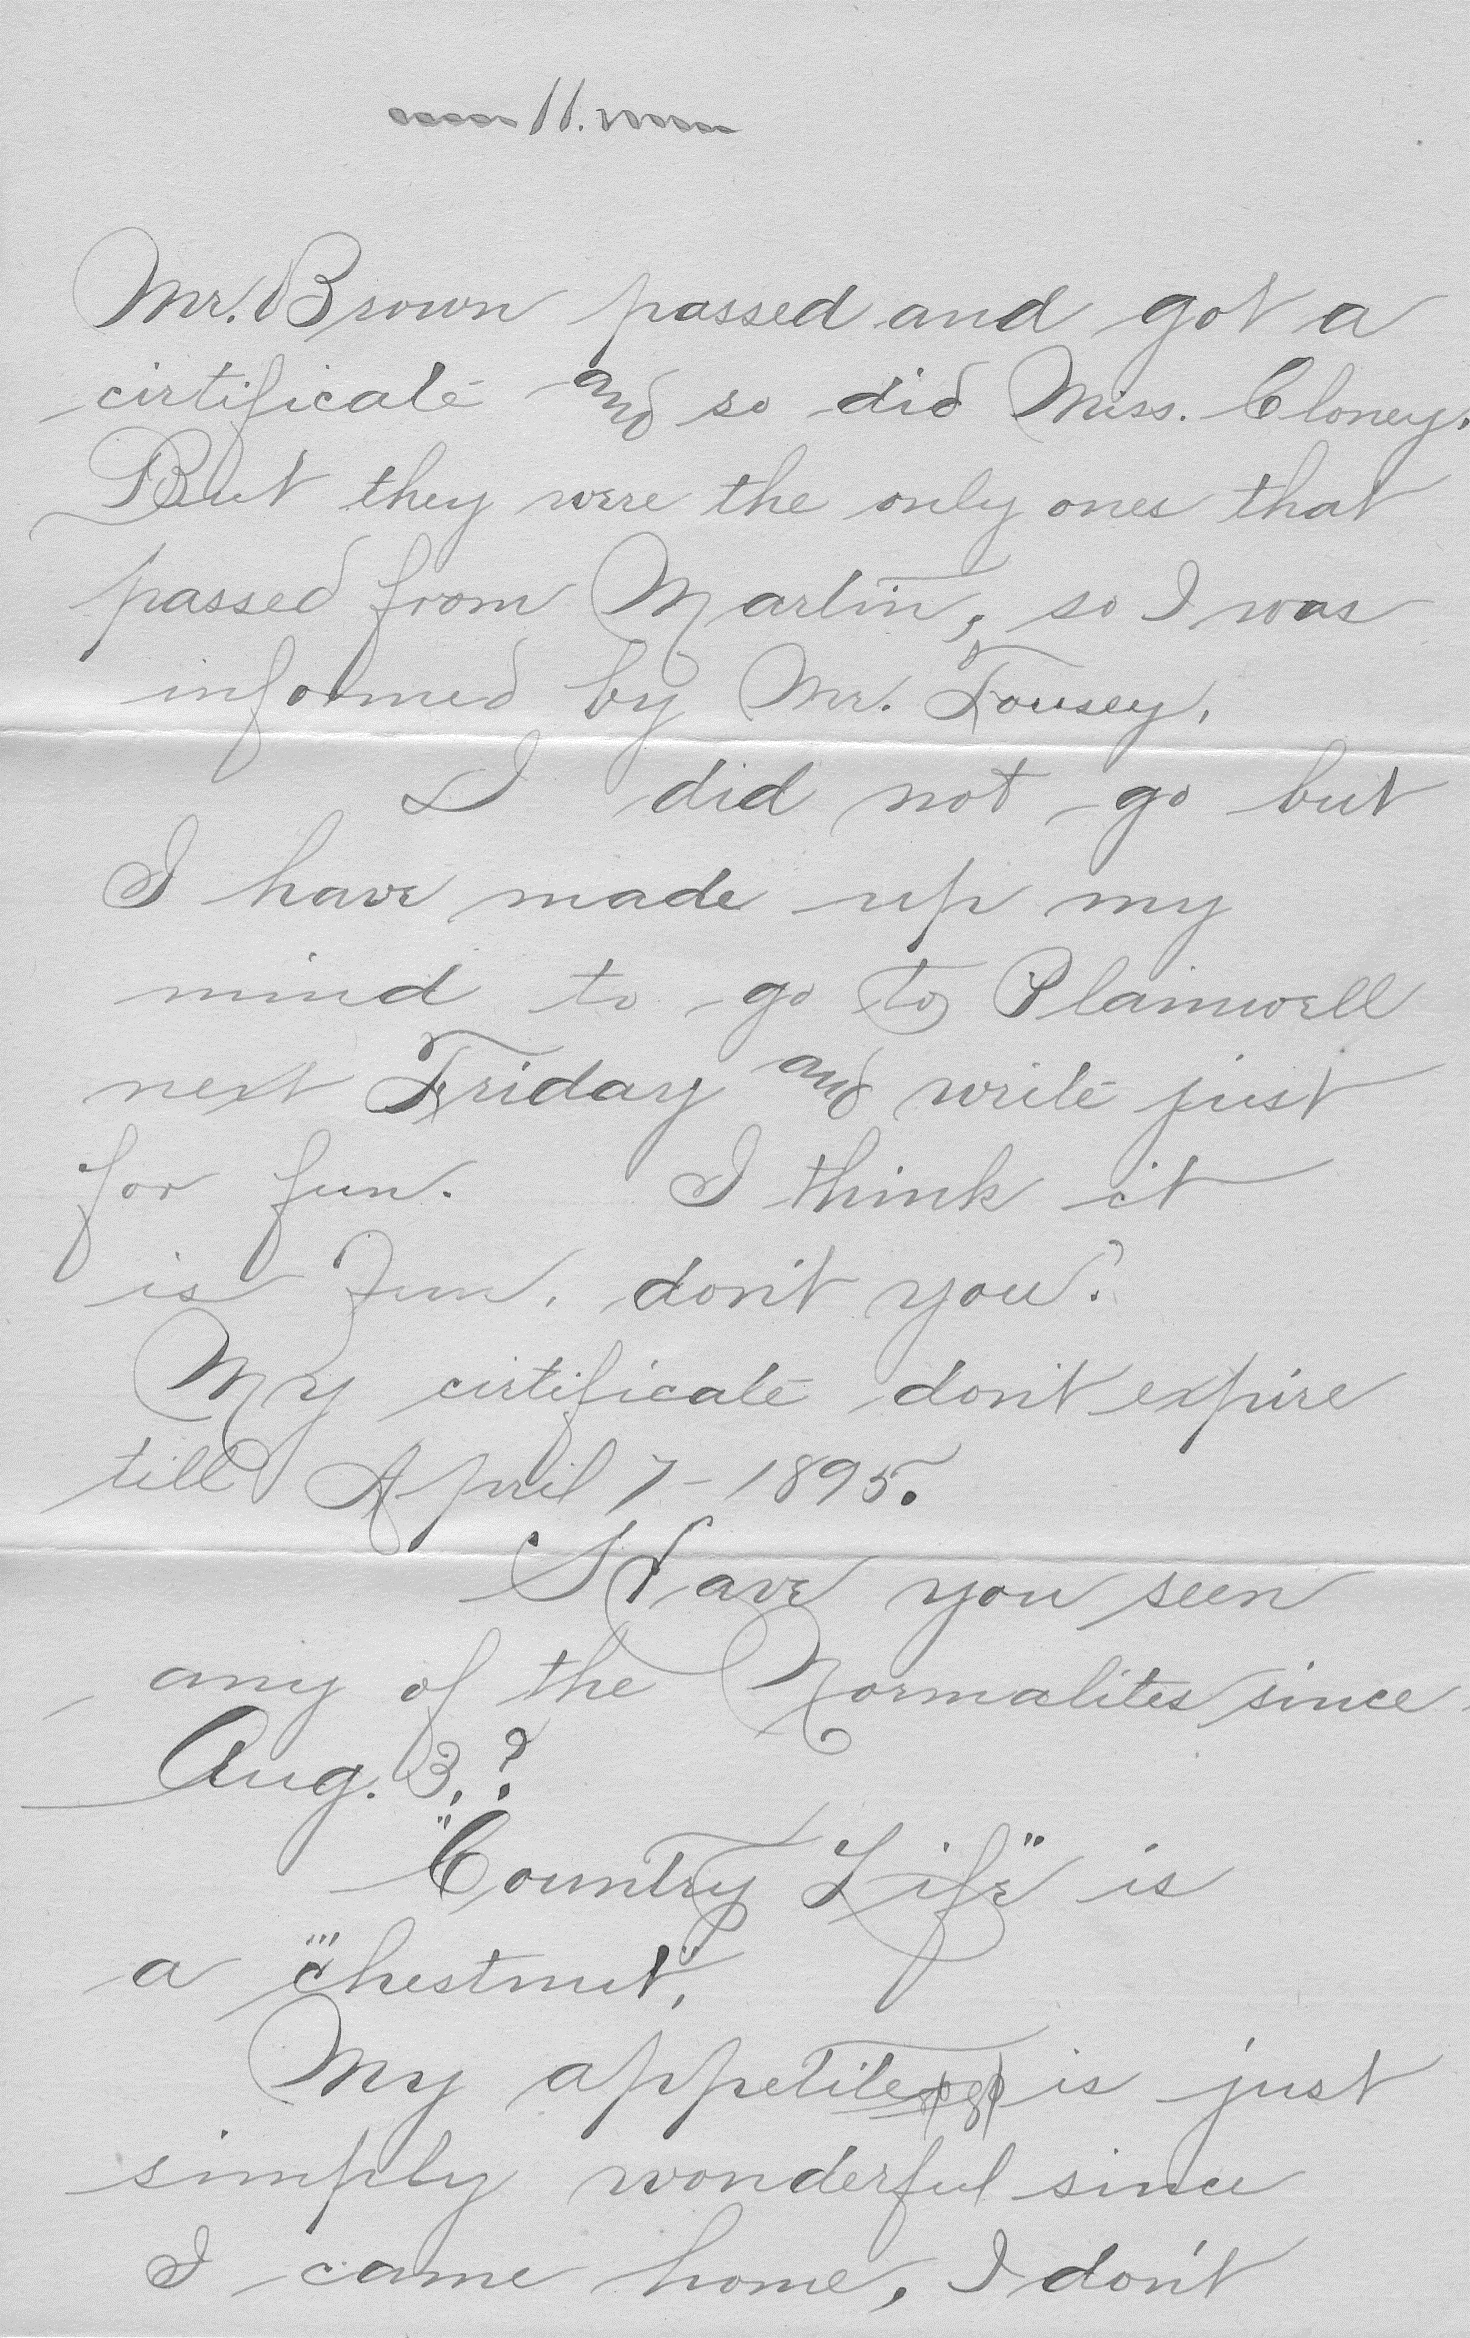 11.
Mr. Brown passed and got a
cirtificate and so did Miss. Cloney.
But they were the only ones that
passed from Martin, so I was
informed by Mr. Tousey.
I did not go but
I have made up my
mind to go to Plainwell
next Friday and write just
for fun. I think it
is Fun, don't you?
My cirtificate don't expire
till April 7-1895.
Have you seen
any of the Normalites since
Aug. 3.?
"Country Life" is
a "chestnut",
My appetite is just
simply wonderful since
I came home, I don't